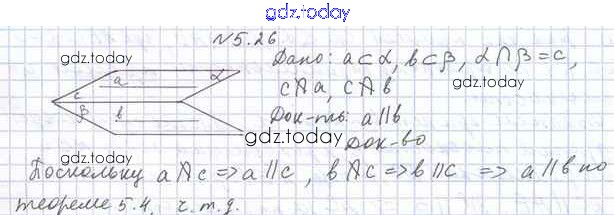 gdz.today
№5.26
gdz.today
Дано: a⊂α, b⊂β, α∩β=c,
a
α
c
β
b
c∦a, c∦b
gdz.today
Док-ть: a∥b
gdz.today
Док-во
gdz.today
Поскольку a∦c ⇒ a∥c, b∦c ⇒ b∥c ⇒ a∥b по
теореме 5.4. ч.т.д.
gdz.today